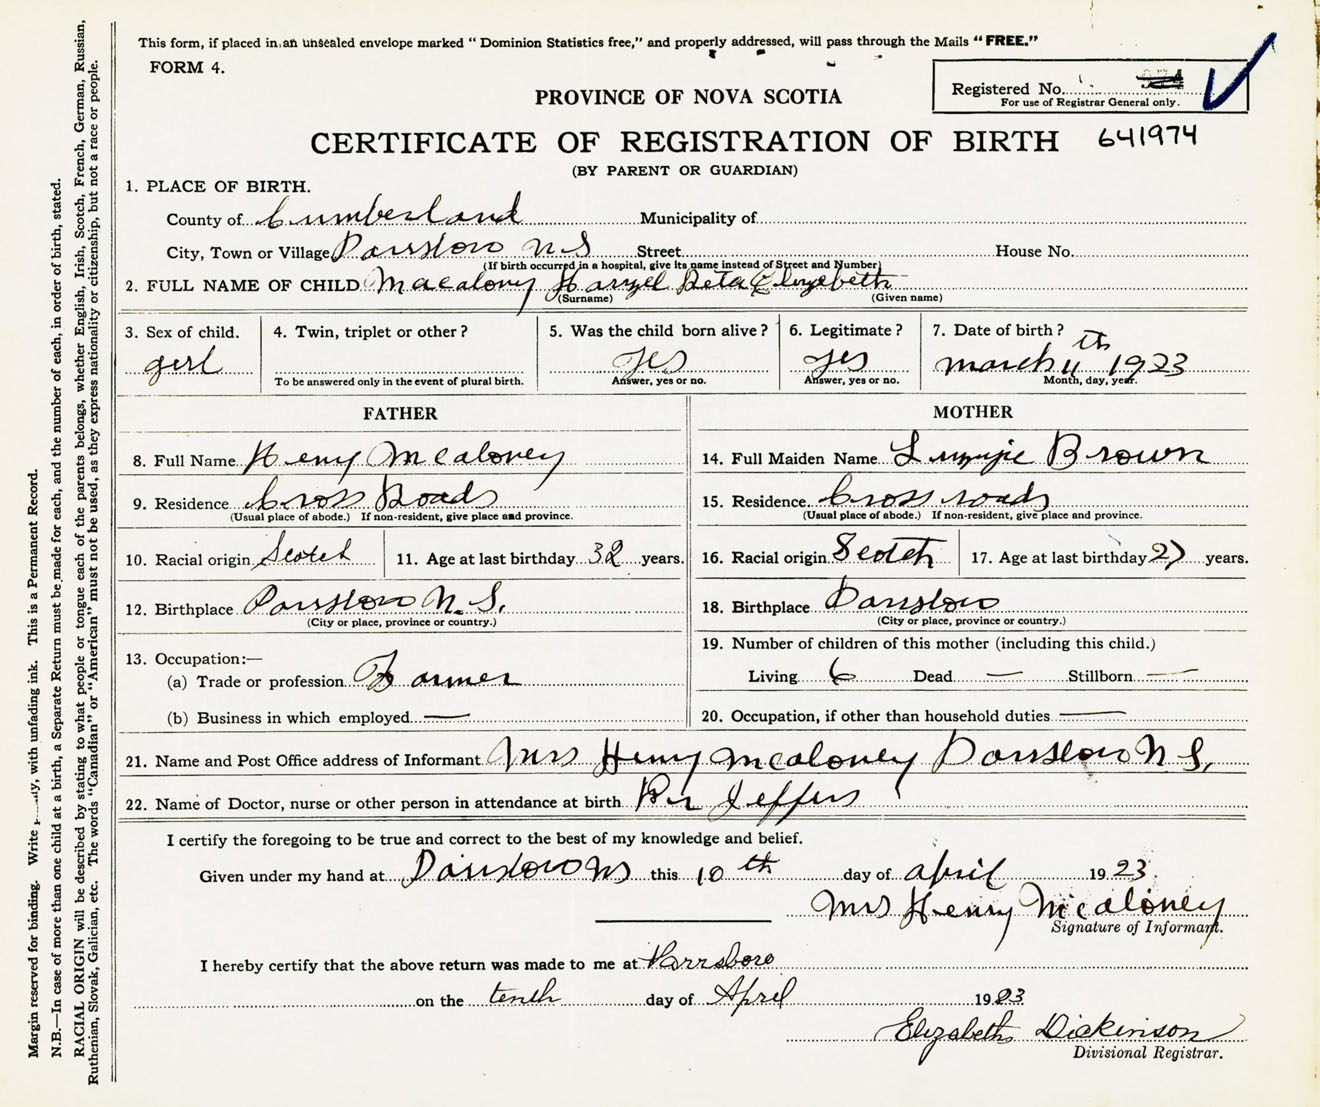 This form, if placed in an unsealed envelope marked "Dominion Statistics free," and properly addressed, will pass through the Mails "FREE."
FORM 4.
Registered No.
For use of Registrar General only.
PROVINCE OF NOVA SCOTIA
CERTIFICATE OF REGISTRATION OF BIRTH 641974
(BY PARENT OR GUARDIAN)
1. PLACE OF BIRTH.
County of Cumberland Municipality of
City, Town or Village Parrsboro N S Street House No.
(If birth occurred in a hospital, give its name instead of Street and Number)
2. FULL NAME OF CHILD Macalony Hazzel Reta Elizabeth
(Surname) (Given name)
3. Sex of child. 4. Twin, triplet or other? 5. Was the child born alive? 6. Legitimate? 7. Date of birth?
girl yes yes march 11th 1923
To be answered only in the event of plural birth. Answer, yes or no. Answer, yes or no. Month, day, year.
FATHER
8. Full Name Henry Mcaloney
9. Residence Cross Roads
(Usual place of abode.) If non-resident, give place and province.
10. Racial origin Scotch 11. Age at last birthday 32 years.
12. Birthplace Parrsboro N. S.
(City or place, province or country.)
13. Occupation:—
(a) Trade or profession Farmer
(b) Business in which employed —
MOTHER
14. Full Maiden Name Brown
15. Residence Cross roads
(Usual place of abode.) If non-resident, give place and province.
16. Racial origin Scotch 17. Age at last birthday 27 years.
18. Birthplace Parrsboro
(City or place, province or country.)
19. Number of children of this mother (including this child.)
Living 6 Dead — Stillborn —
20. Occupation, if other than household duties —
21. Name and Post Office address of Informant Mrs Henry Mcaloney Parrsboro N S.
22. Name of Doctor, nurse or other person in attendance at birth Dr Jeffers
I certify the foregoing to be true and correct to the best of my knowledge and belief.
Given under my hand at Parrsboro NS this 10th day of april 1923.
Mrs Henry Mcaloney
Signature of Informant.
I hereby certify that the above return was made to me at Parrsboro
on the tenth day of April 1923
Elizabeth Dickinson
Divisional Registrar.
Margin reserved for binding. Write with unfading ink. This is a Permanent Record.
N.B.—In case of more than one child at a birth, a Separate Return must be made for each, and the number of each, in order of birth, stated.
RACIAL ORIGIN will be described by stating to what people or tongue each of the parents belongs, whether English, Irish, Scotch, French, German, Russian,
Ruthenian, Slovak, Galician, etc. The words "Canadian" or "American" must not be used, as they express nationality or citizenship, but not a race or people.